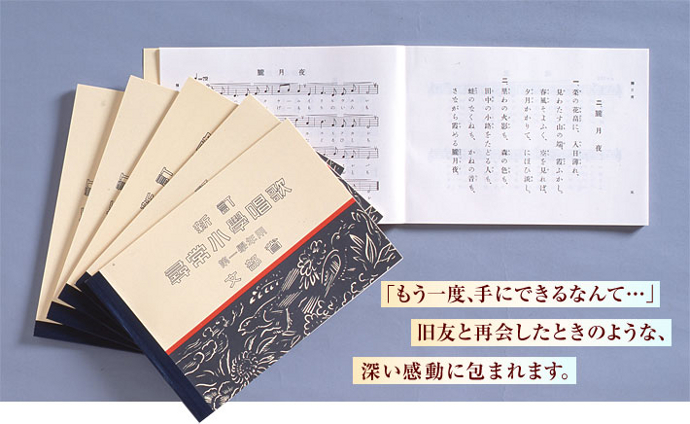 朧月夜
二、朧月夜
一、菜の花畠に、入日薄れ、
見わたす山の端、霞ふかし。
春風そよふく、空を見れば、
夕月かかりて、にほひ淡し。
二、里わの火影も、森の色も、
田中の小路をたどる人も、
蛙のなくねも、かねの音も、
さながら霞める朧月夜。
新訂
尋常小學唱歌
第一學年用
文部省
「もう一度、手にできるなんて…」
旧友と再会したときのような、
深い感動に包まれます。